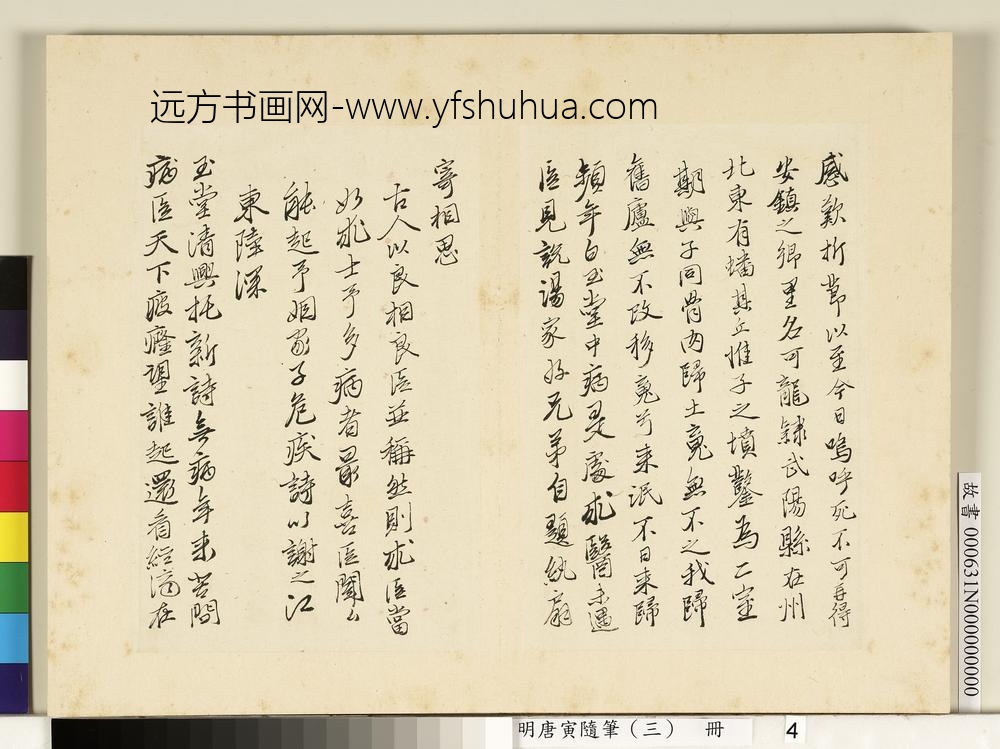 远方书画网-www.yfshuhua.com
感歎折節以至今日嗚呼死不可再得
安鎮之鄉里名可龍隸武陽縣在州
北東有蟠其丘惟子之墳鑿為二室
期與子同骨肉歸土魂無不之我歸
舊廬無不改移魂兮来泯不日来歸
頻年白玉堂中病是處求醫未遇
医見說湯家好兄弟自題紈扇
寄相思
古人以良相良医並稱然則求医當
如求士予多病者最喜医聞公
能起予姻家子危疾詩以謝之江
東陸深
玉堂清興托新詩無病年来苦問
病医天下疲癃望誰起還看經濟在
故書 000631N000000000
明唐寅隨筆（三） 冊
4